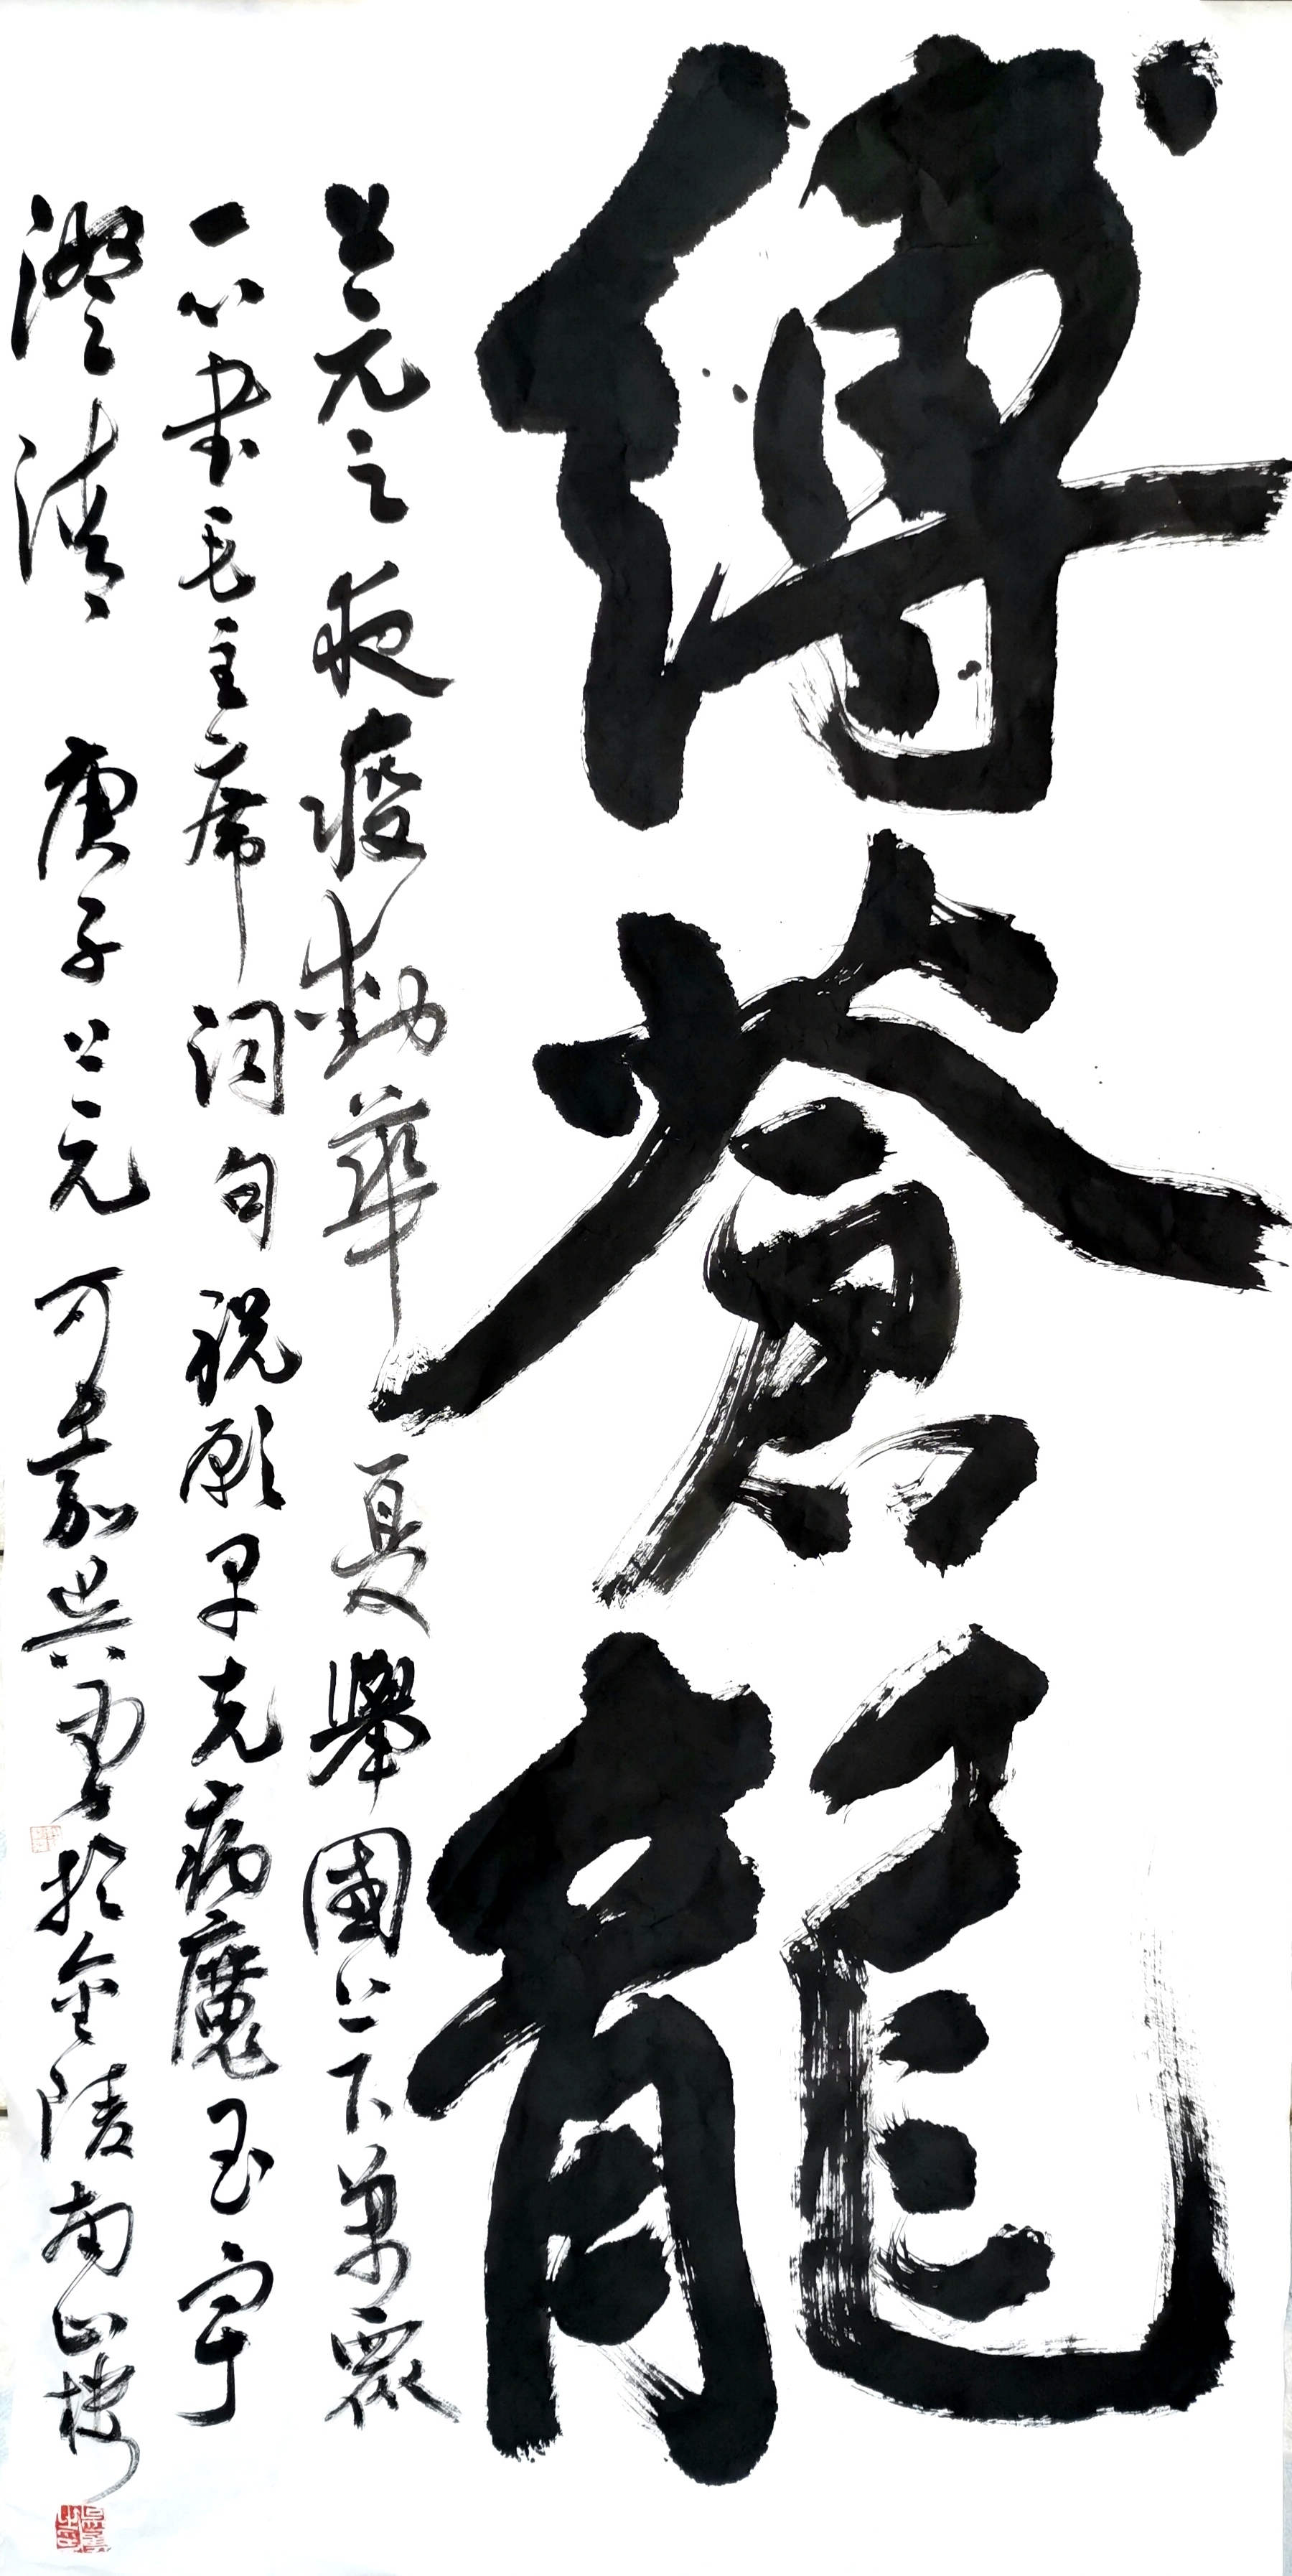 縛蒼龍
上元之夜疫動華夏舉國上下萬眾
一心書毛主席詞句祝願早克病魔玉宇
澄清 庚子上元 可嘉吳勇於金陵南山樓